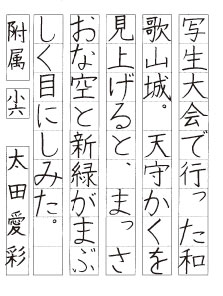 写生大会で行った和
歌山城。天守かくを
見上げると、まっさ
おな空と新緑がまぶ
しく目にしみた。
附属 小六 太田愛彩